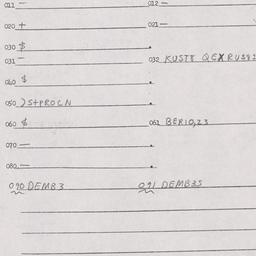 011 — 012 —
020 + 021 —
030 $
031 — 032 KUSTE QEXRUS82
040 $
050 )S+PROCN
060 $ 061 BER10,23
070 —
080 —
090 DEMB3 091 DEMB3S